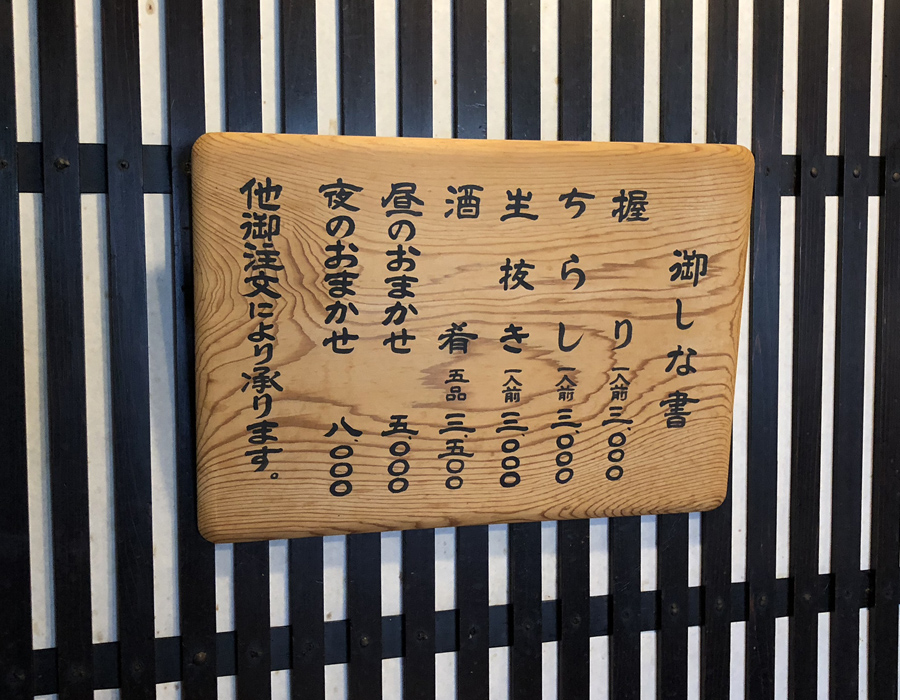 御しな書
握り 一人前 三、〇〇〇
ちらし 一人前 三、〇〇〇
生抜き 一人前 三、〇〇〇
酒肴 五品 三、五〇〇
昼のおまかせ 五、〇〇〇
夜のおまかせ 八、〇〇〇
他御注文により承ります。